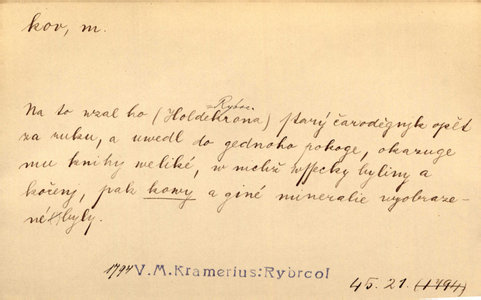 kov, m.
= Rýbrc.
Na to wzal ho (Holdekrona) starý čaroděgnjk opět
za ruku, a uwedl do gednoho pokoge, okazuge
mu knihy weliké, w nichž wssecky byliny a
kořeny, pak kowy a giné mineralie wyobraze-
né byly.
1794 V. M. Kramerius: Rybrcol
45. 21. (1794)